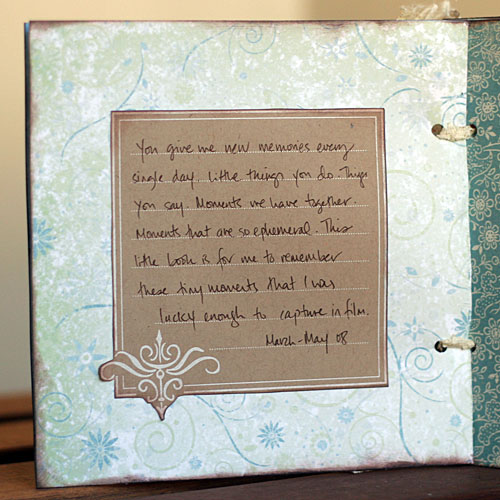 You give me new memories every
single day. Little things you do. Things
you say. Moments we have together.
Moments that are so ephemeral. This
little book is for me to remember
these tiny moments that I was
lucky enough to capture in film.
March - May 08